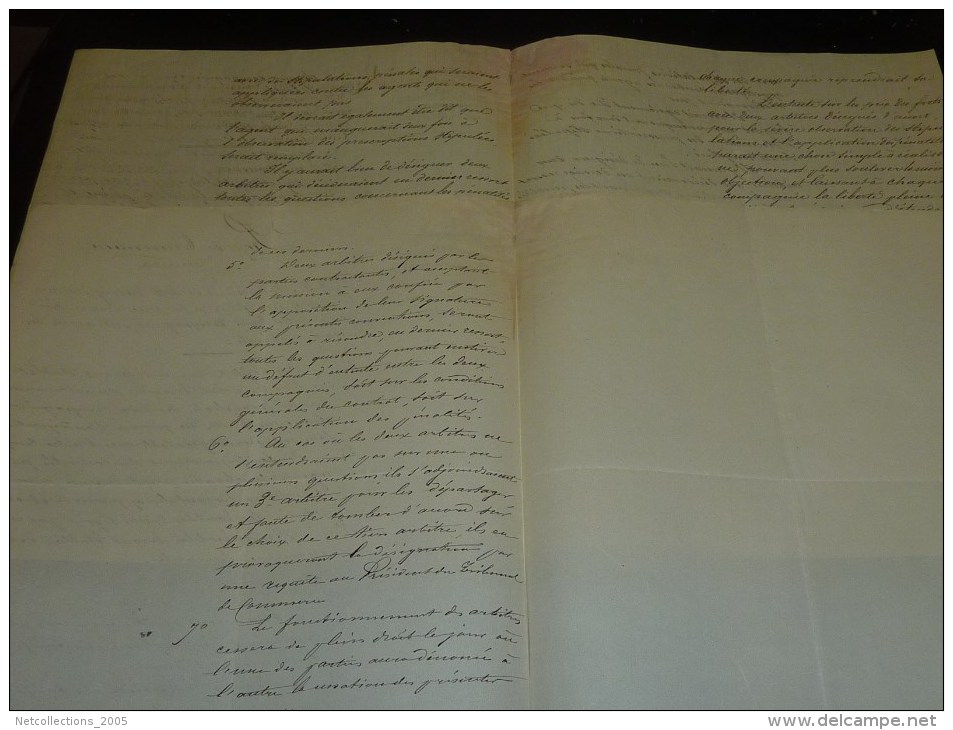 avec des stipulations pénales qui seraient
appliquées contre les agents qui ne les
observeraient pas
Il devrait également être dit que
l'agent qui manquerait deux fois à
l'observation des prescriptions stipulées
serait remplacé.
Il y aurait lieu de désigner deux
arbitres qui décideraient en dernier ressort
toutes les questions concernant les pénalités
chaque compagnie reprendrait sa
liberté.
L'entente sur les prix des frets
deux arbitres désignés
pour la sévère observation des stipu
lations et l'application des pénalités
parait une chose simple à réaliser
ne pouvant plus soulever
objections, et laissant à chaque
compagnie la liberté pleine
ces derniers.
5° Deux arbitres désignés par les
parties contractantes, et acceptant
la mission à eux confiée par
l'apposition de leur signature
aux présentes conventions, seront
appelés à résoudre, en dernier ressort
toutes les questions pouvant motiver
un défaut d'entente entre les deux
compagnies, soit sur les conditions
générales du contrat, soit sur
l'application des pénalités.
6° Au cas où les deux arbitres ne
s'entendraient pas sur une ou
plusieurs questions ils s'adjoindraient
un 3e arbitre pour les départager
et faute de tomber d'accord sur
le choix de ce tiers arbitre, ils en
provoqueront la désignation par
une requête au Président du Tribunal
de Commerce
7° Le fonctionnement des arbitres
cessera de plein droit le jour où
l'une des parties aura dénoncé à
l'autre la cessation des présentes
Netcollections_2005
www.delcampe.net